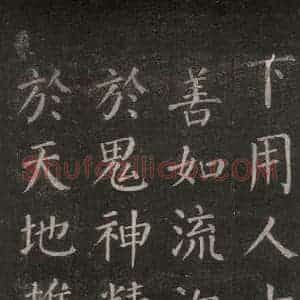 下用人
善如流
於鬼神精
於天地